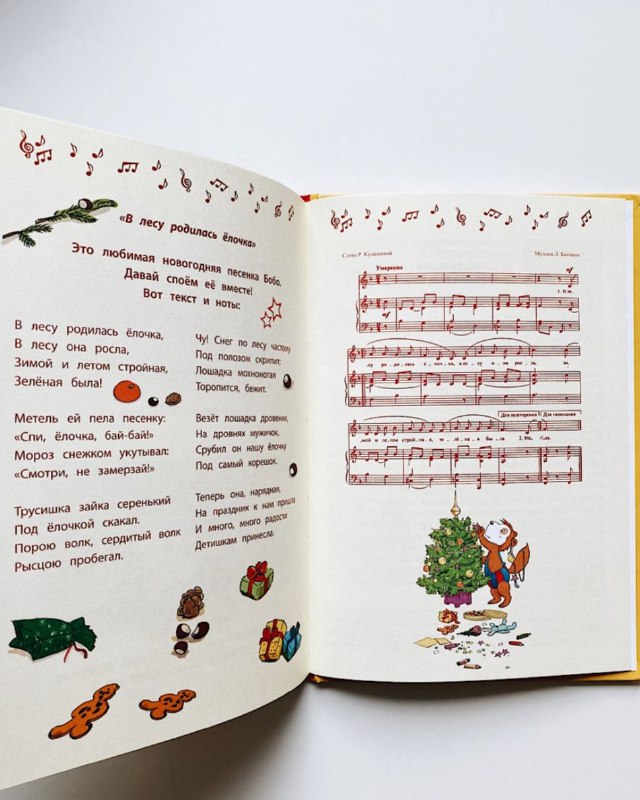 «В лесу родилась ёлочка»
Это любимая новогодняя песенка Бобо.
Давай споём её вместе!
Вот текст и ноты:
В лесу родилась ёлочка,
В лесу она росла,
Зимой и летом стройная,
Зелёная была!
Метель ей пела песенку:
«Спи, ёлочка, бай-бай!»
Мороз снежком укутывал:
«Смотри, не замерзай!»
Трусишка зайка серенький
Под ёлочкой скакал.
Порою волк, сердитый волк
Рысцою пробегал.
Чу! Снег по лесу частому
Под полозом скрипит;
Лошадка мохноногая
Торопится, бежит.
Везёт лошадка дровенки,
На дровнях мужичок,
Срубил он нашу ёлочку
Под самый корешок.
Теперь она, нарядная,
На праздник к нам пришла
И много, много радости
Детишкам принесла.
Слова Р. Кудашевой
Музыка Л. Бекмана
Умеренно
Для повторения
Для окончания